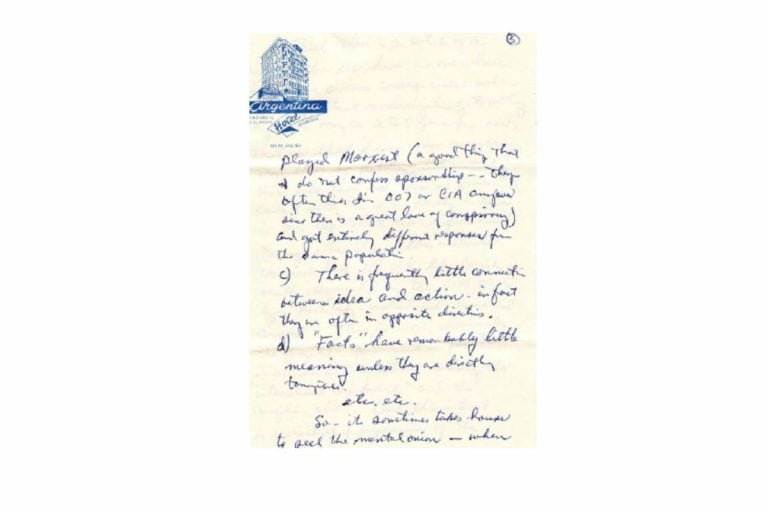 3
Argentina
Hotel
played Marxist (a good thing that
I do not confess sponsorship -- they
often think I'm 007 or CIA anyhow
since there is a great love of conspiracy)
and got entirely different responses from
the same population.
c) There is frequently little connection
between idea and action - in fact
they are often in opposite directions.
d) "Facts" have remarkably little
meaning unless they are directly
etc. etc.
So - it sometimes takes hours
to peel the mental onion — when